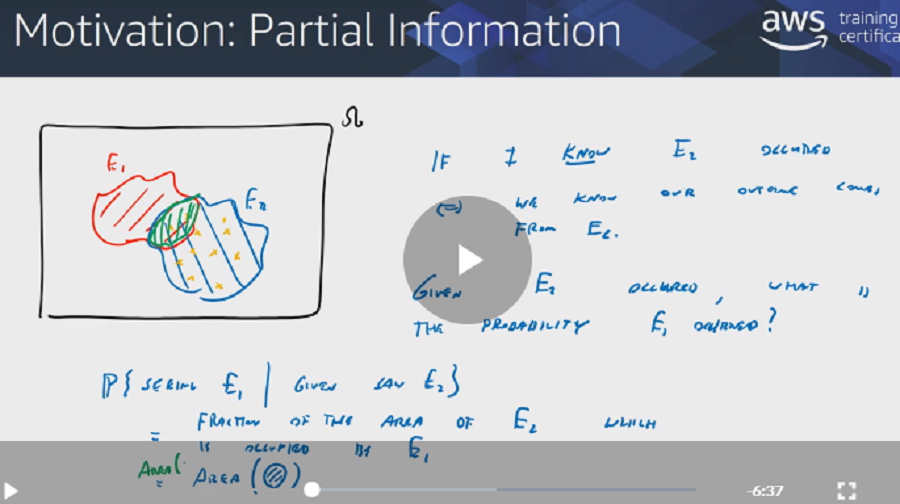 Motivation: Partial Information
aws training
certifica
Ω
E₁
E₂
IF I KNOW E₂ OCCURED
(=) WE KNOW OUR OUTCOME COMES
FROM E₂.
GIVEN E₂ OCCURED, WHAT IS
THE PROBABILITY E₁ OCCURED?
P{SEEING E₁ | GIVEN SAW E₂}
= FRACTION OF THE AREA OF E₂ WHICH
IS OCCUPIED BY E₁
= AREA(
AREA( )
-6:37